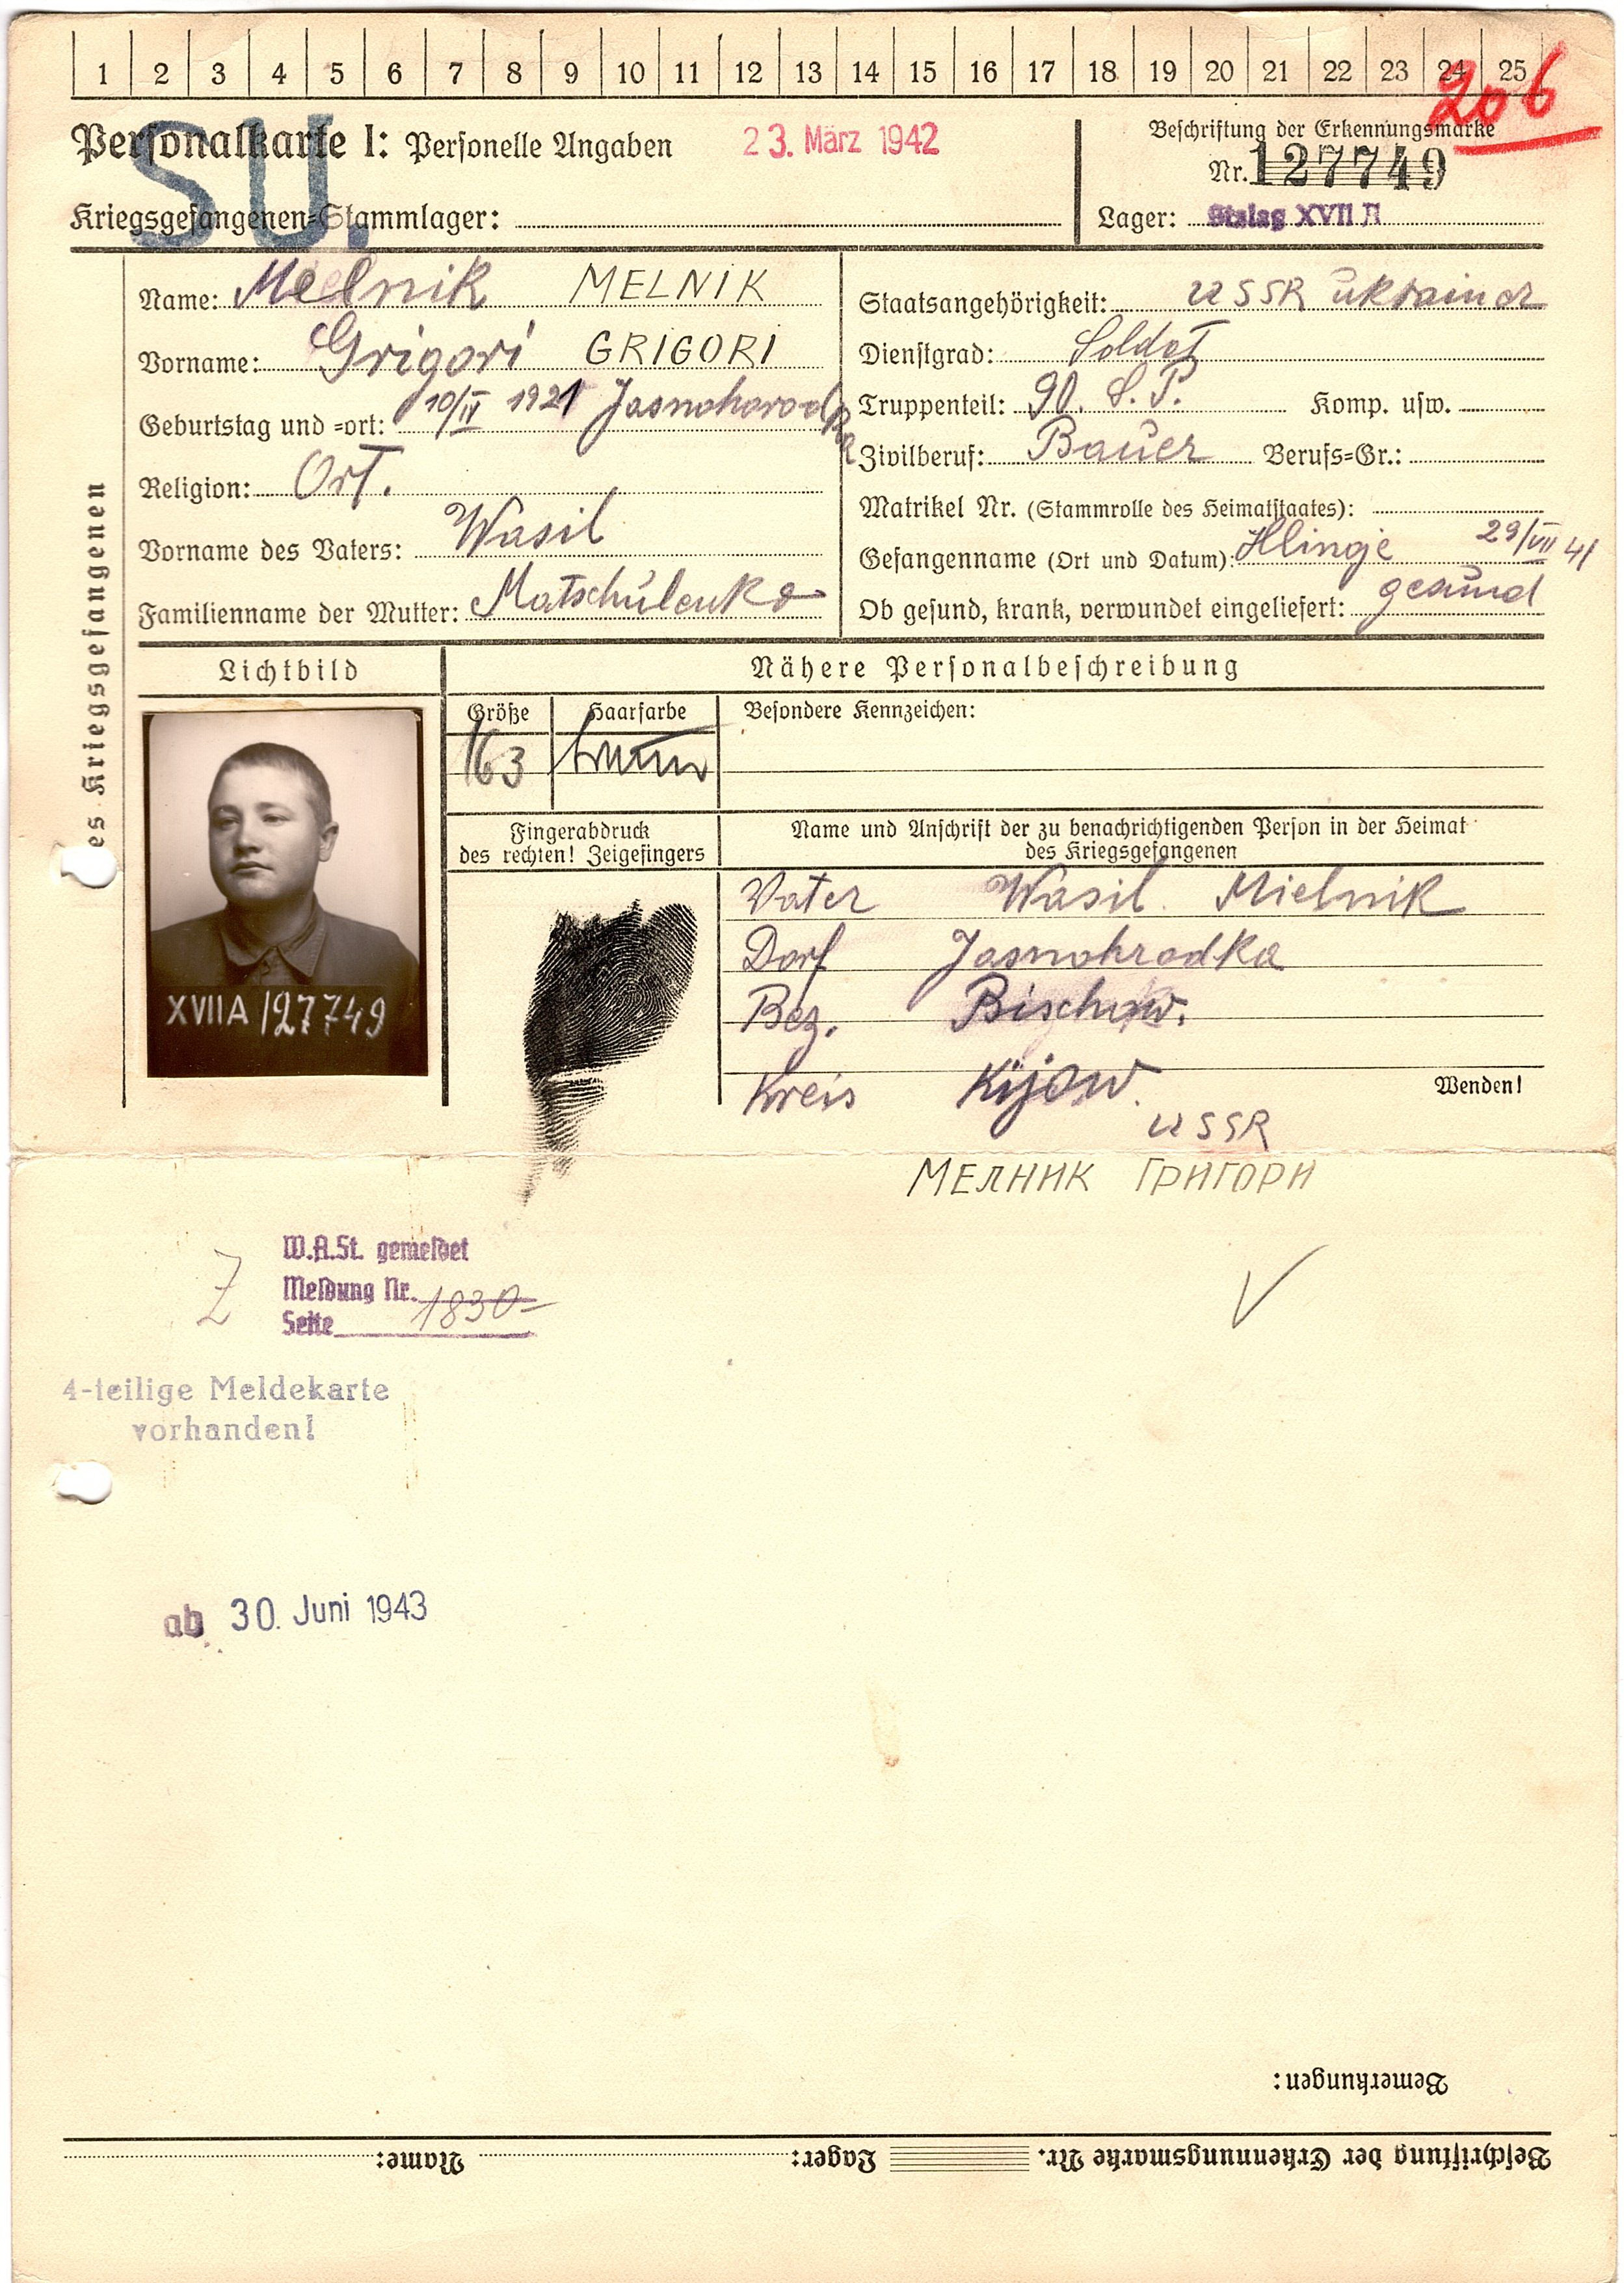 1 2 3 4 5 6 7 8 9 10 11 12 13 14 15 16 17 18 19 20 21 22 23 24 25
206
SU.
Personalkarte I: Personelle Angaben 23. März 1942
Kriegsgefangenen=Stammlager:
Beschriftung der Erkennungsmarke
Nr. 127749
Lager: Stalag XVII A
es Kriegsgefangenen
Name: Melnik MELNIK
Vorname: Grigori GRIGORI
Geburtstag und =ort: 10/IV 1921 Jasnohorodka
Religion: Ort.
Vorname des Vaters: Wasil
Familienname der Mutter: Matschulenko
Staatsangehörigkeit: USSR Ukrainer
Dienstgrad: Soldat
Truppenteil: 90. S.P. Komp. usw.
Zivilberuf: Bauer Berufs=Gr.:
Matrikel Nr. (Stammrolle des Heimatstaates):
Gefangennahme (Ort und Datum): Hlinge 29/VII 41
Ob gesund, krank, verwundet eingeliefert: gesund
Lichtbild
Nähere Personalbeschreibung
Größe Haarfarbe Besondere Kennzeichen:
163 braun
Fingerabdruck
des rechten! Zeigefingers
Name und Anschrift der zu benachrichtigenden Person in der Heimat
des Kriegsgefangenen
XVIIA 127749
Vater Wasil Mielnik
Dorf Jasnohradka
Bez. Bischow.
Kreis Kijow.
USSR
Wenden!
МЕЛНИК ГРИГОРИ
Z
W.A.St. gemeldet
Meldung Nr. 1830
Seite
4-teilige Meldekarte
vorhanden!
ab 30. Juni 1943
Bemerkungen:
Beschriftung der Erkennungsmarke Nr. Lager: Name: